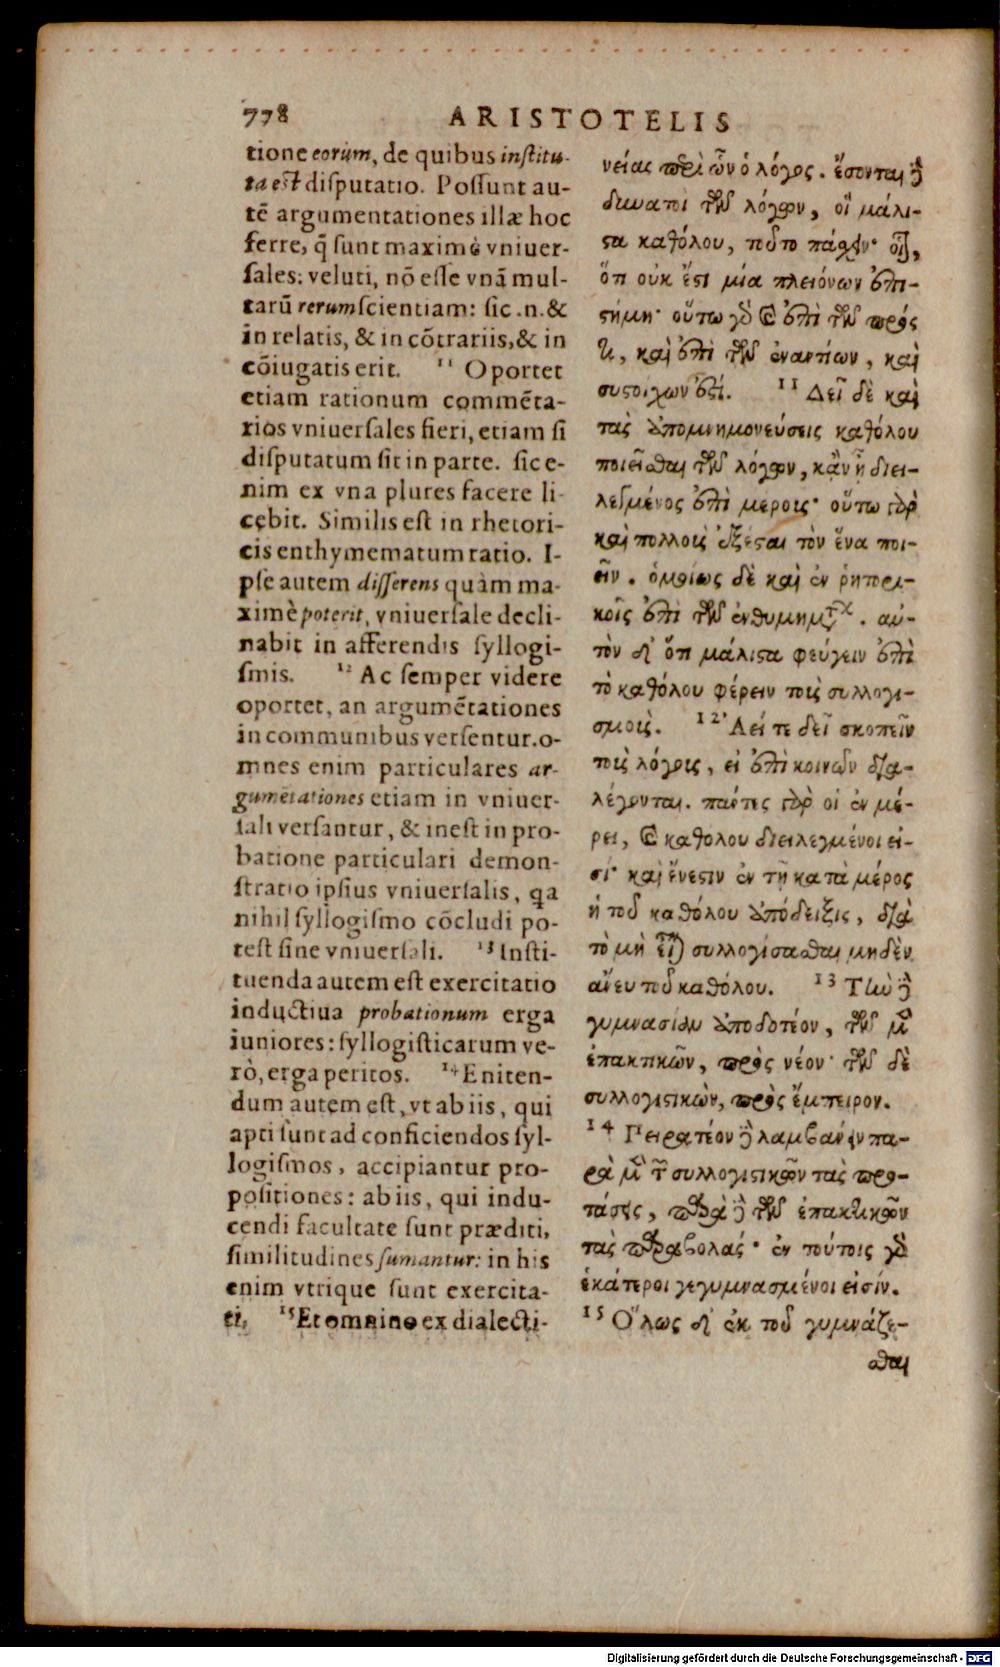 778
ARISTOTELIS
tione eorum, de quibus institu-
ta est disputatio. Possunt au-
tē argumentationes illæ hoc
ferre, q̃ sunt maximè vniuer-
sales: veluti, nō esse vnā mul-
tarū rerum scientiam: sic .n. &
in relatis, & in cōtrariis, & in
cōiugatis erit. 11 Oportet
etiam rationum commēta-
rios vniuersales fieri, etiam si
disputatum sit in parte. sic e-
nim ex vna plures facere li-
cebit. Similis est in rhetori-
cis enthymematum ratio. I-
pse autem disserens quàm ma-
ximè poterit, vniuersale decli-
nabit in afferendis syllogi-
smis. 12 Ac semper videre
oportet, an argumētationes
in communibus versentur. o-
mnes enim particulares ar-
gumētationes etiam in vniuer-
sali versantur, & inest in pro-
batione particulari demon-
stratio ipsius vniuersalis, qa
nihil syllogismo cōcludi po-
test sine vniuersali. 13 Insti-
tuenda autem est exercitatio
inductiua probationum erga
iuniores: syllogisticarum ve-
rò, erga peritos. 14 Eniten-
dum autem est, vt ab iis, qui
apti sunt ad conficiendos syl-
logismos, accipiantur pro-
positiones: ab iis, qui indu-
cendi facultate sunt præditi,
similitudines sumantur: in his
enim vtrique sunt exercita-
ti. 15 Et omnino ex dialecti-
νείας περὶ ὧν ὁ λόγος. ἔσονται δὲ
δυνατοὶ τῶν λόγων, οἳ μάλι-
στα καθόλου, τοῦτο πάσχειν· οἷον,
ὅτι οὐκ ἔστι μία πλειόνων ἐπι-
στήμη· οὕτω γὰρ καὶ ἐπὶ τῶν πρός
τι, καὶ ἐπὶ τῶν ἐναντίων, καὶ
συστοίχων ἐστί. 11 Δεῖ δὲ καὶ
τὰς ἀπομνημονεύσεις καθόλου
ποιεῖσθαι τῶν λόγων, κἂν ᾖ διει-
λεγμένος ἐπὶ μέροις· οὕτω γὰρ
καὶ πολλοὶς ἐξέσται τὸν ἕνα ποι-
εῖν. ὁμοίως δὲ καὶ ἐν ῥητορι-
κοῖς ἐπὶ τῶν ἐνθυμημάτων. αὐ-
τὸν δ' ὅτι μάλιστα φεύγειν ἐπὶ
τὸ καθόλου φέρειν τοὺς συλλογι-
σμούς. 12 Ἀεί τε δεῖ σκοπεῖν
τοὺς λόγους, εἰ ἐπὶ κοινῶν δια-
λέγονται. πάντες γὰρ οἱ ἐν μέ-
ρει, καὶ καθόλου διειλεγμένοι εἰ-
σί· καὶ ἔνεστιν ἐν τῇ κατὰ μέρος
ἡ τοῦ καθόλου ἀπόδειξις, διὰ
τὸ μὴ εἶναι συλλογίσασθαι μηδὲν
ἄνευ τοῦ καθόλου. 13 Τὴν δὲ
γυμνασίαν ἀποδοτέον, τῶν μὲν
ἐπακτικῶν, πρὸς νέον· τῶν δὲ
συλλογιστικῶν, πρὸς ἔμπειρον.
14 Πειρατέον δὲ λαμβάνειν πα-
ρὰ μὲν τῶν συλλογιστικῶν τὰς προ-
τάσεις, παρὰ δὲ τῶν ἐπακτικῶν
τὰς παραβολάς· ἐν τούτοις γὰρ
ἑκάτεροι γεγυμνασμένοι εἰσίν.
15 Ὅλως δ' ἐκ τοῦ γυμνάζε-
σθαι
Digitalisierung gefördert durch die Deutsche Forschungsgemeinschaft - DFG